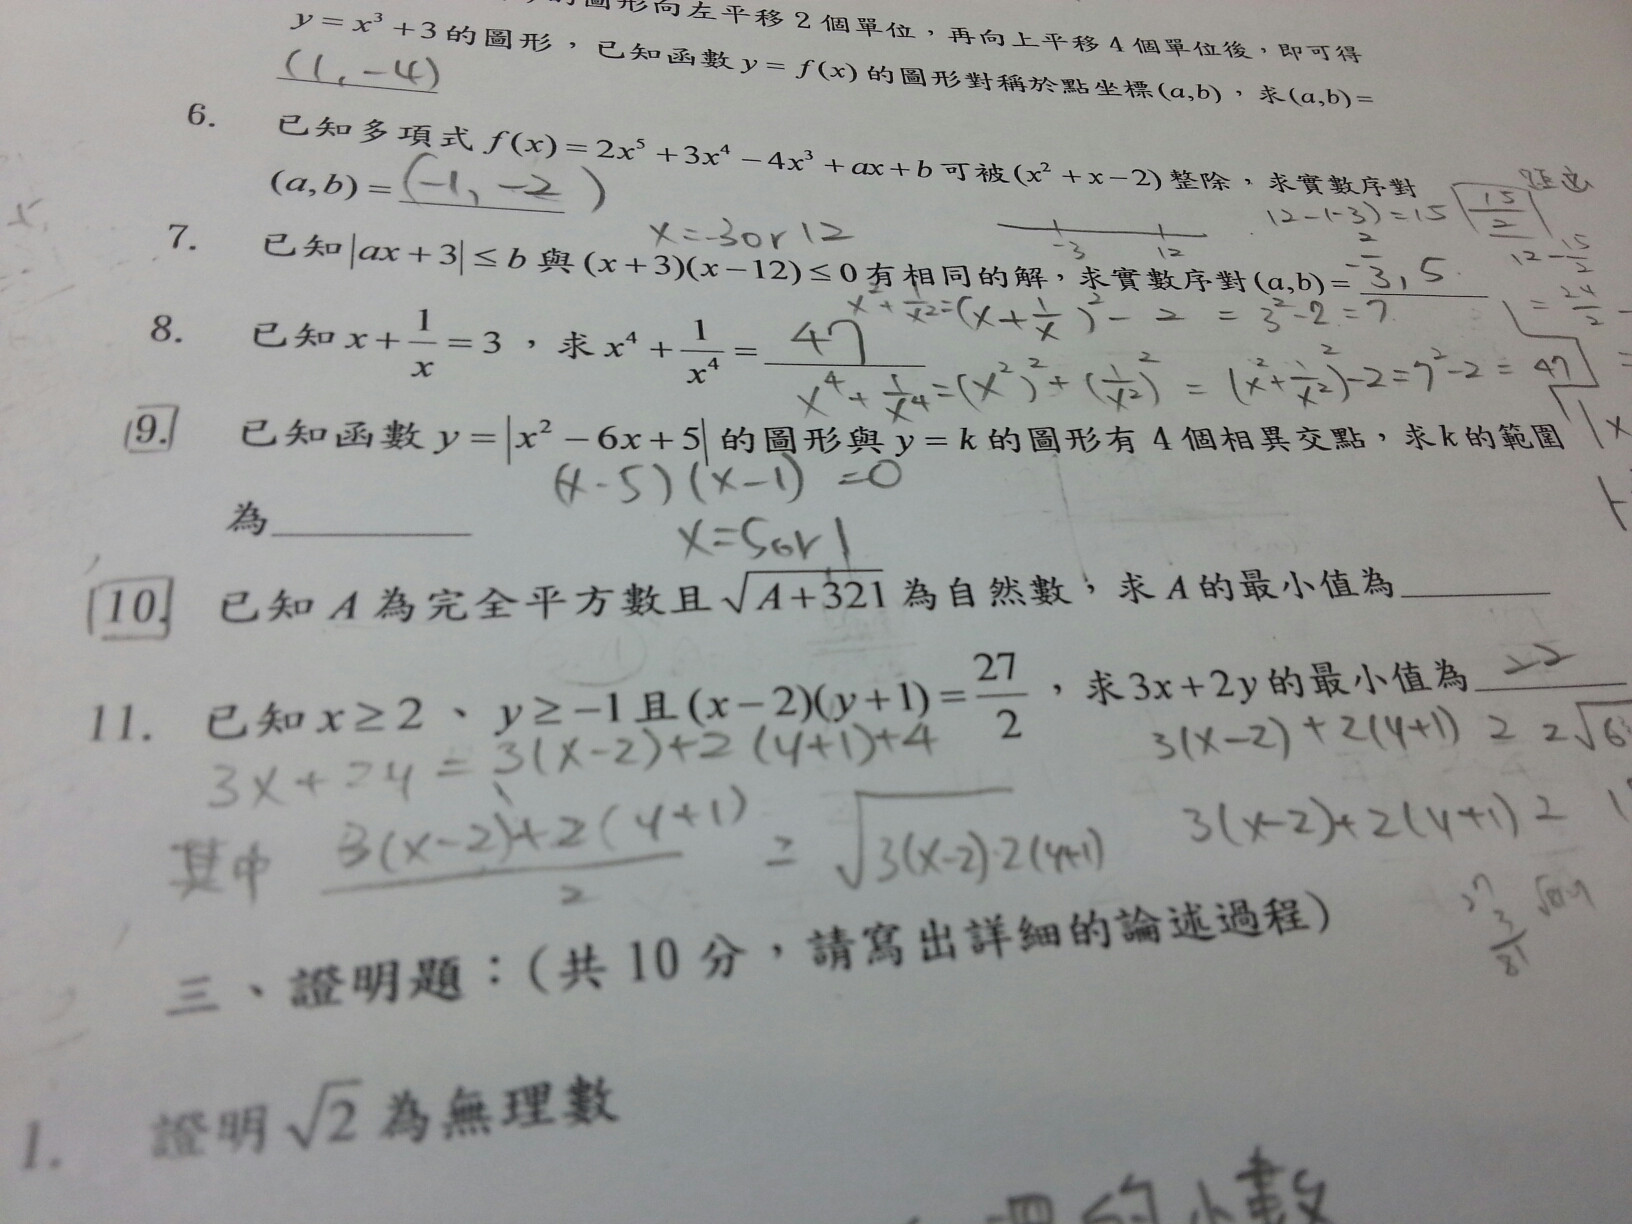 的圖形向左平移 2 個單位，再向上平移 4 個單位後，即可得
y = x³ + 3 的圖形，已知函數 y = f(x) 的圖形對稱於點坐標 (a,b)，求 (a,b) =
(1, -4)
6. 已知多項式 f(x) = 2x⁵ + 3x⁴ - 4x³ + ax + b 可被 (x² + x - 2) 整除，求實數序對
(a,b) = (-1, -2)
12-(-3) = 15 15/2
x = -3 or 12
-3 12
12 - 15/2
7. 已知 |ax + 3| ≤ b 與 (x + 3)(x - 12) ≤ 0 有相同的解，求實數序對 (a,b) = -2/3, 5
= 24/2 -
x² + 1/x² = (x + 1/x)² - 2 = 3² - 2 = 7
8. 已知 x + 1/x = 3，求 x⁴ + 1/x⁴ = 47
x⁴ + 1/x⁴ = (x²)² + (1/x²)² = (x² + 1/x²)² - 2 = 7² - 2 = 47
9. 已知函數 y = |x² - 6x + 5| 的圖形與 y = k 的圖形有 4 個相異交點，求 k 的範圍
(x-5)(x-1) = 0
為
x = 5 or 1
10. 已知 A 為完全平方數且 √(A + 321) 為自然數，求 A 的最小值為
11. 已知 x ≥ 2、y ≥ -1 且 (x - 2)(y + 1) = 27/2，求 3x + 2y 的最小值為 22
3x + 2y = 3(x-2) + 2(y+1) + 4
3(x-2) + 2(y+1) ≥ 2√6
其中 3(x-2) + 2(y+1) / 2 ≥ √3(x-2)·2(y+1)
3(x-2) + 2(y+1) ≥ 1
27
3
81
三、證明題：(共 10 分，請寫出詳細的論述過程)
1. 證明 √2 為無理數
的小數